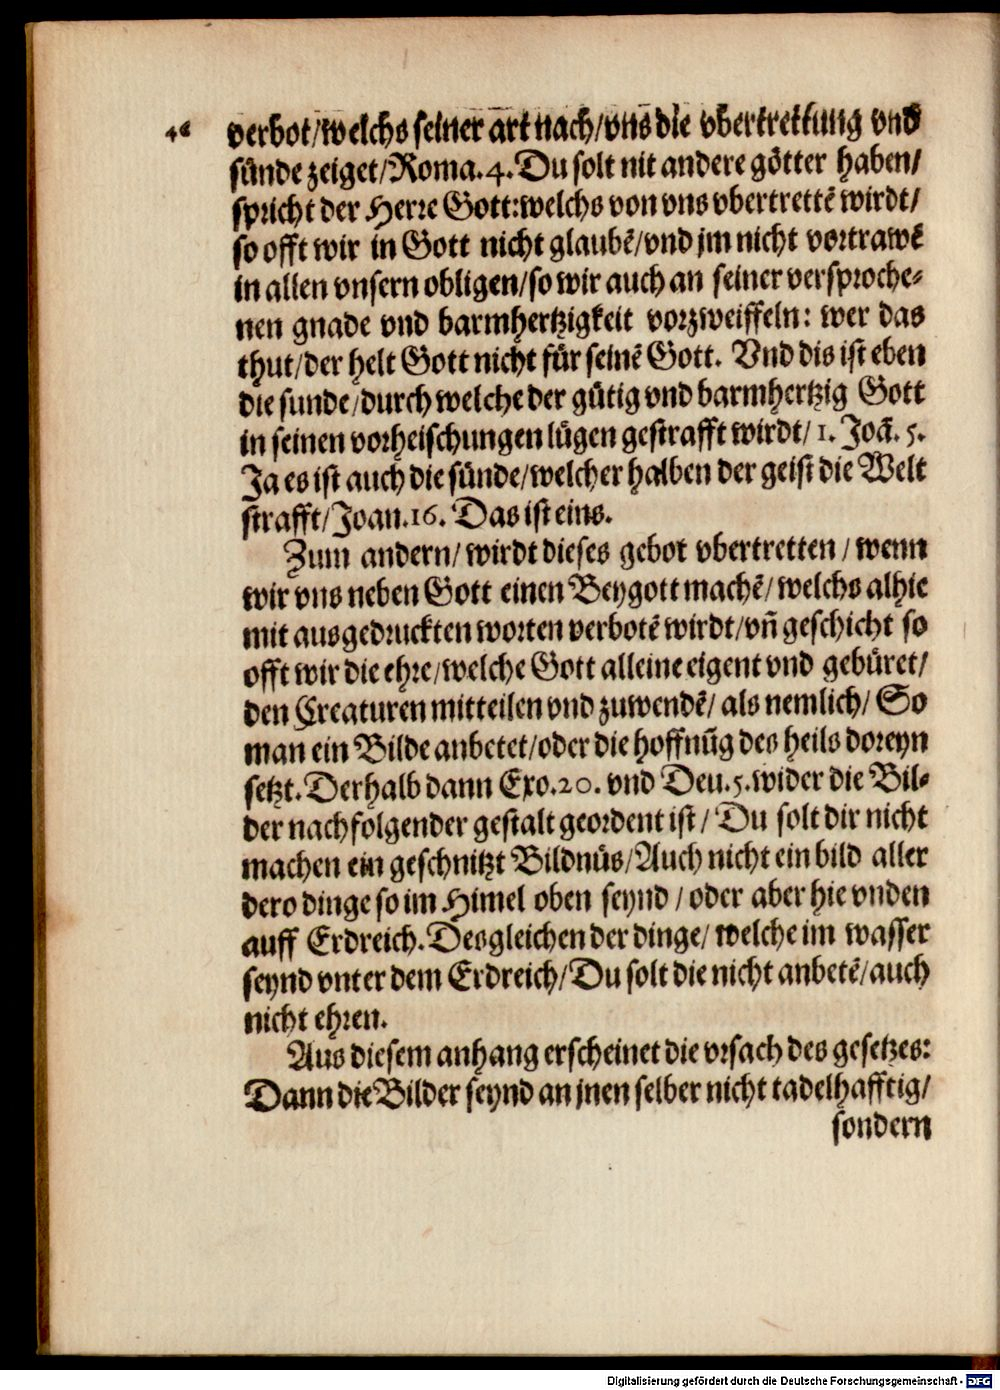 verbot/welchs seiner art nach/vns die vbertrettung vnd
sünde zeiget/Roma.4.Du solt nit andere götter haben/
spricht der Herre Gott:welchs von vns vbertrettē wirdt/
so offt wir in Gott nicht glaubē/vnd jm nicht vortrawē
in allen vnsern obligen/so wir auch an seiner versproche-
nen gnade vnd barmhertzigkeit vorzweiffeln: wer das
thut/der helt Gott nicht für seinē Gott. Vnd dis ist eben
die sunde/durch welche der gütig vnd barmhertzig Gott
in seinen vorheischungen lügen gestrafft wirdt/ 1. Joā. 5.
Ja es ist auch die sünde/welcher halben der geist die Welt
strafft/Joan.16. Das ist eins.
Zum andern/ wirdt dieses gebot vbertretten / wenn
wir vns neben Gott einen Beygott machē/ welchs alhie
mit ausgedruckten worten verbotē wirdt/vñ geschicht so
offt wir die ehre/welche Gott alleine eigent vnd gebüret/
den Creaturen mitteilen vnd zuwendē/ als nemlich/ So
man ein Bilde anbetet/oder die hoffnūg des heils doreyn
setzt. Derhalb dann Exo.20. vnd Deu.5.wider die Bil-
der nachfolgender gestalt geordent ist/ Du solt dir nicht
machen ein geschnitzt Bildnüs/Auch nicht ein bild aller
dero dinge so im Himel oben seynd / oder aber hie vnden
auff Erdreich. Desgleichen der dinge/ welche im wasser
seynd vnter dem Erdreich/Du solt die nicht anbetē/auch
nicht ehren.
Aus diesem anhang erscheinet die vrsach des gesetzes:
Dann die Bilder seynd an jnen selber nicht tadelhafftig/
sondern
Digitalisierung gefördert durch die Deutsche Forschungsgemeinschaft - DFG